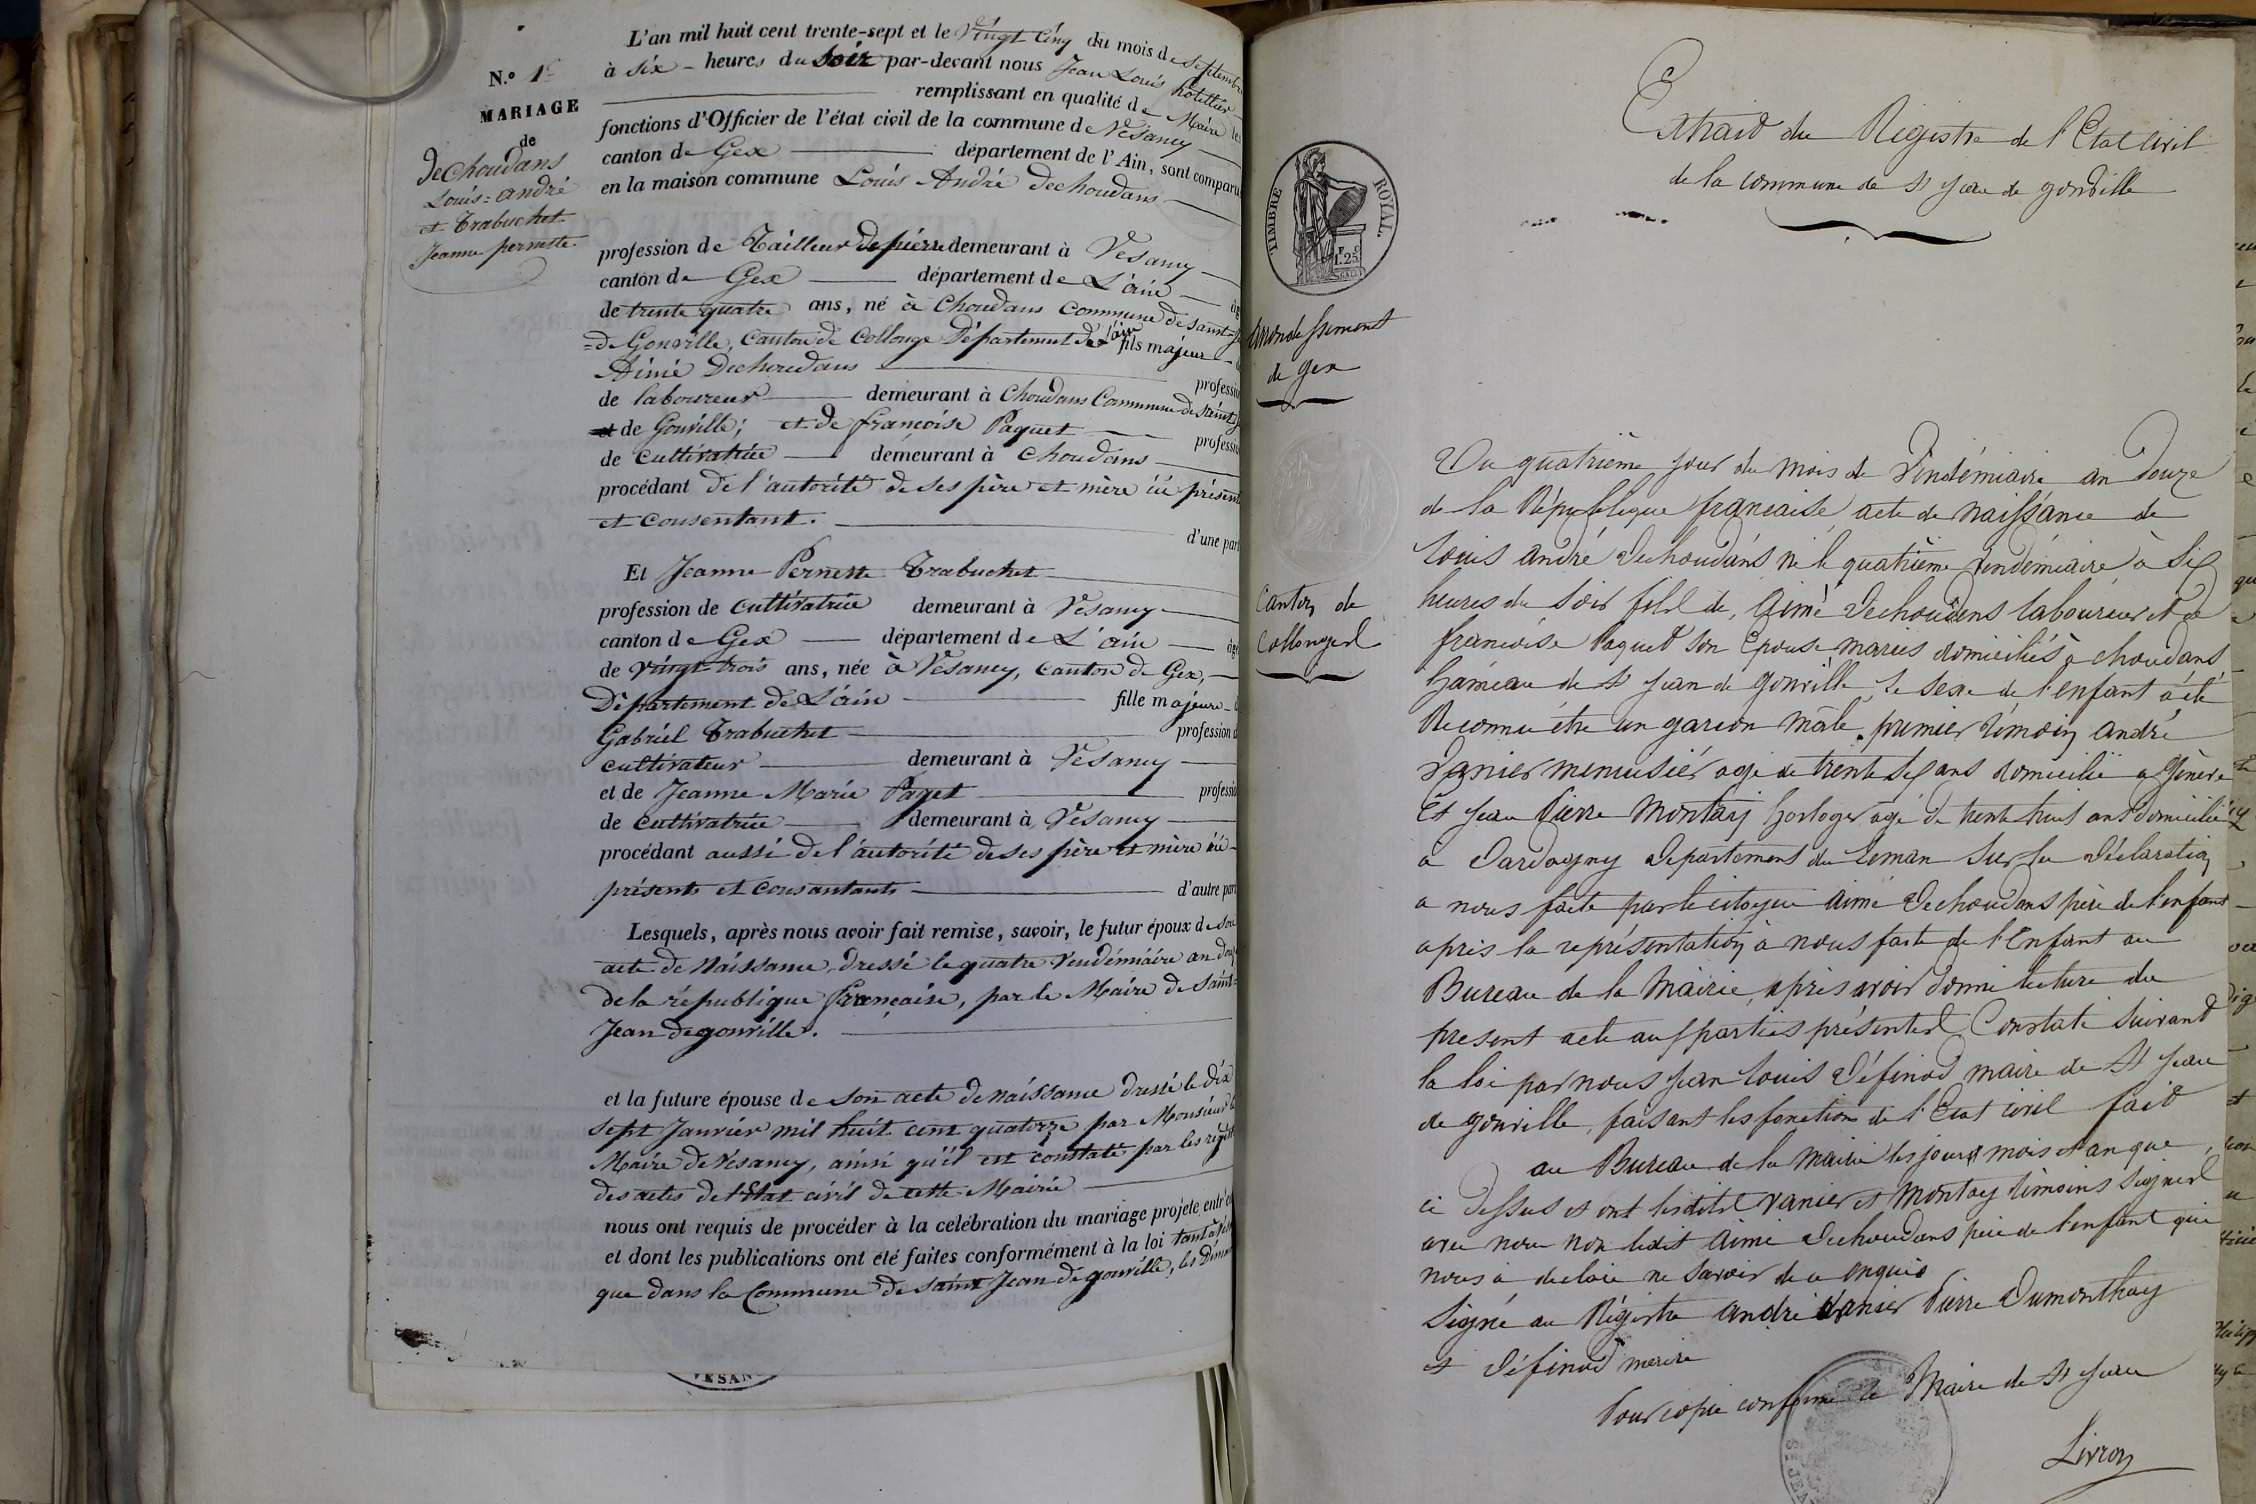 N.º 1er
MARIAGE
de
Dechoudans
Louis=André
et Trabuchet
Jeanne pernette
L'an mil huit cent trente-sept et le Vingt Cinq du mois de septembre
à six - heures du Soir par-devant nous Jean Louis hotellier
remplissant en qualité de Maire les
fonctions d'Officier de l'état civil de la commune de Vesancy
canton de Gex département de l'Ain, sont comparu
en la maison commune Louis André Dechoudans
profession de Tailleur de pierre demeurant à Vesancy
canton de Gex département de L'ain âg
de trente quatre ans, né à Choudans Commune de saint-
=de Gonville, Canton de Collonge Département de l'ain fils majeur
Aimé Dechoudans professio
de laboureur demeurant à Choudans Commune de Saint
de Gonville; et de françoise Paquet professio
de Cultivatrice demeurant à Choudans
procédant de l'autorité de ses père et mère ici présent
et Consentant.
d'une part
Et Jeanne Pernette Trabuchet
profession de Cultivatrice demeurant à Vesancy
canton de Gex département de L'ain âg
de vingt trois ans, née à Vesancy, Canton de Gex,
Département de L'ain fille majeure
Gabriel Trabuchet profession d
cultivateur demeurant à Vesancy
et de Jeanne Marie Paget professio
de Cultivatrice demeurant à Vesancy
procédant aussi de l'autorité de ses père et mère ici
présents et Consantants d'autre part
Lesquels, après nous avoir fait remise, savoir, le futur époux de son
acte de Naissance, dressé le quatre Vendémiaire an douz
de la république française, par le Maire de Saint=
Jean de gonville.
et la future épouse de son acte de Naissance dressé le dix
sept Janvier mil huit cent quatorze par Monsieur le
Maire de Vesancy, ainsi qu'il est constaté par les regist
des actes de l'Etat civil de cette Mairie
nous ont requis de procéder à la celébration du mariage projeté entr'eux
et dont les publications ont été faites conformément à la loi tant à Vés
que dans la Commune de saint Jean de gonville, les Diman
VESAN
TIMBRE ROYAL.
F. C.
1. 25
arrondissement
de gex
Canton de
Collonges
Extrait du Régistre de l'Etat Civil
de la commune de St Jean de gonville
Du quatrième jour du mois de Vindémiaire an Douze
de la République francaise acte de Naissance de
louis andré Dechoudans né le quatrième vendémiaire à Six
heures du Soir fils de, Aimé Dechoudans laboureur et de
francoise Paquet son Epouse mariés domiciliés à choudans
hameau de St Jean de gonville, le sexe de l'enfant a été
Reconnu être un garcon mâle. premier témoin André
Vanier menuisier agé de trente six ans domicilié a Génève
Et Jean Pierre Montaij horloger agé de trente huit ans domicilié
a Dardagny Département du Leman Sur la Déclaration
a nous faite par le citoyen Aimé Dechoudans père de l'enfant
après la représentation à nous faite de l'Enfant au
Bureau de la Mairie, après avoir donné lecture du
présent acte aux parties présentes Constaté Suivant
la loi par nous Jean Louis Définod maire de St Jean
de gonville, faisant les fonctions de l'Etat civil fait
au Bureau de la Mairie les jours mois et an que
ci dessus et ont lesdits Vanier et Montaij témoins Signés
avec nous non ledit Aimé Dechoudans père de l'enfant qui
nous a declaré ne Savoir de ce enquis
Signé au Régistre André Vanier Pierre Dumonthay
et Définod maire
Pour copie conforme le Maire de St Jean
Livron